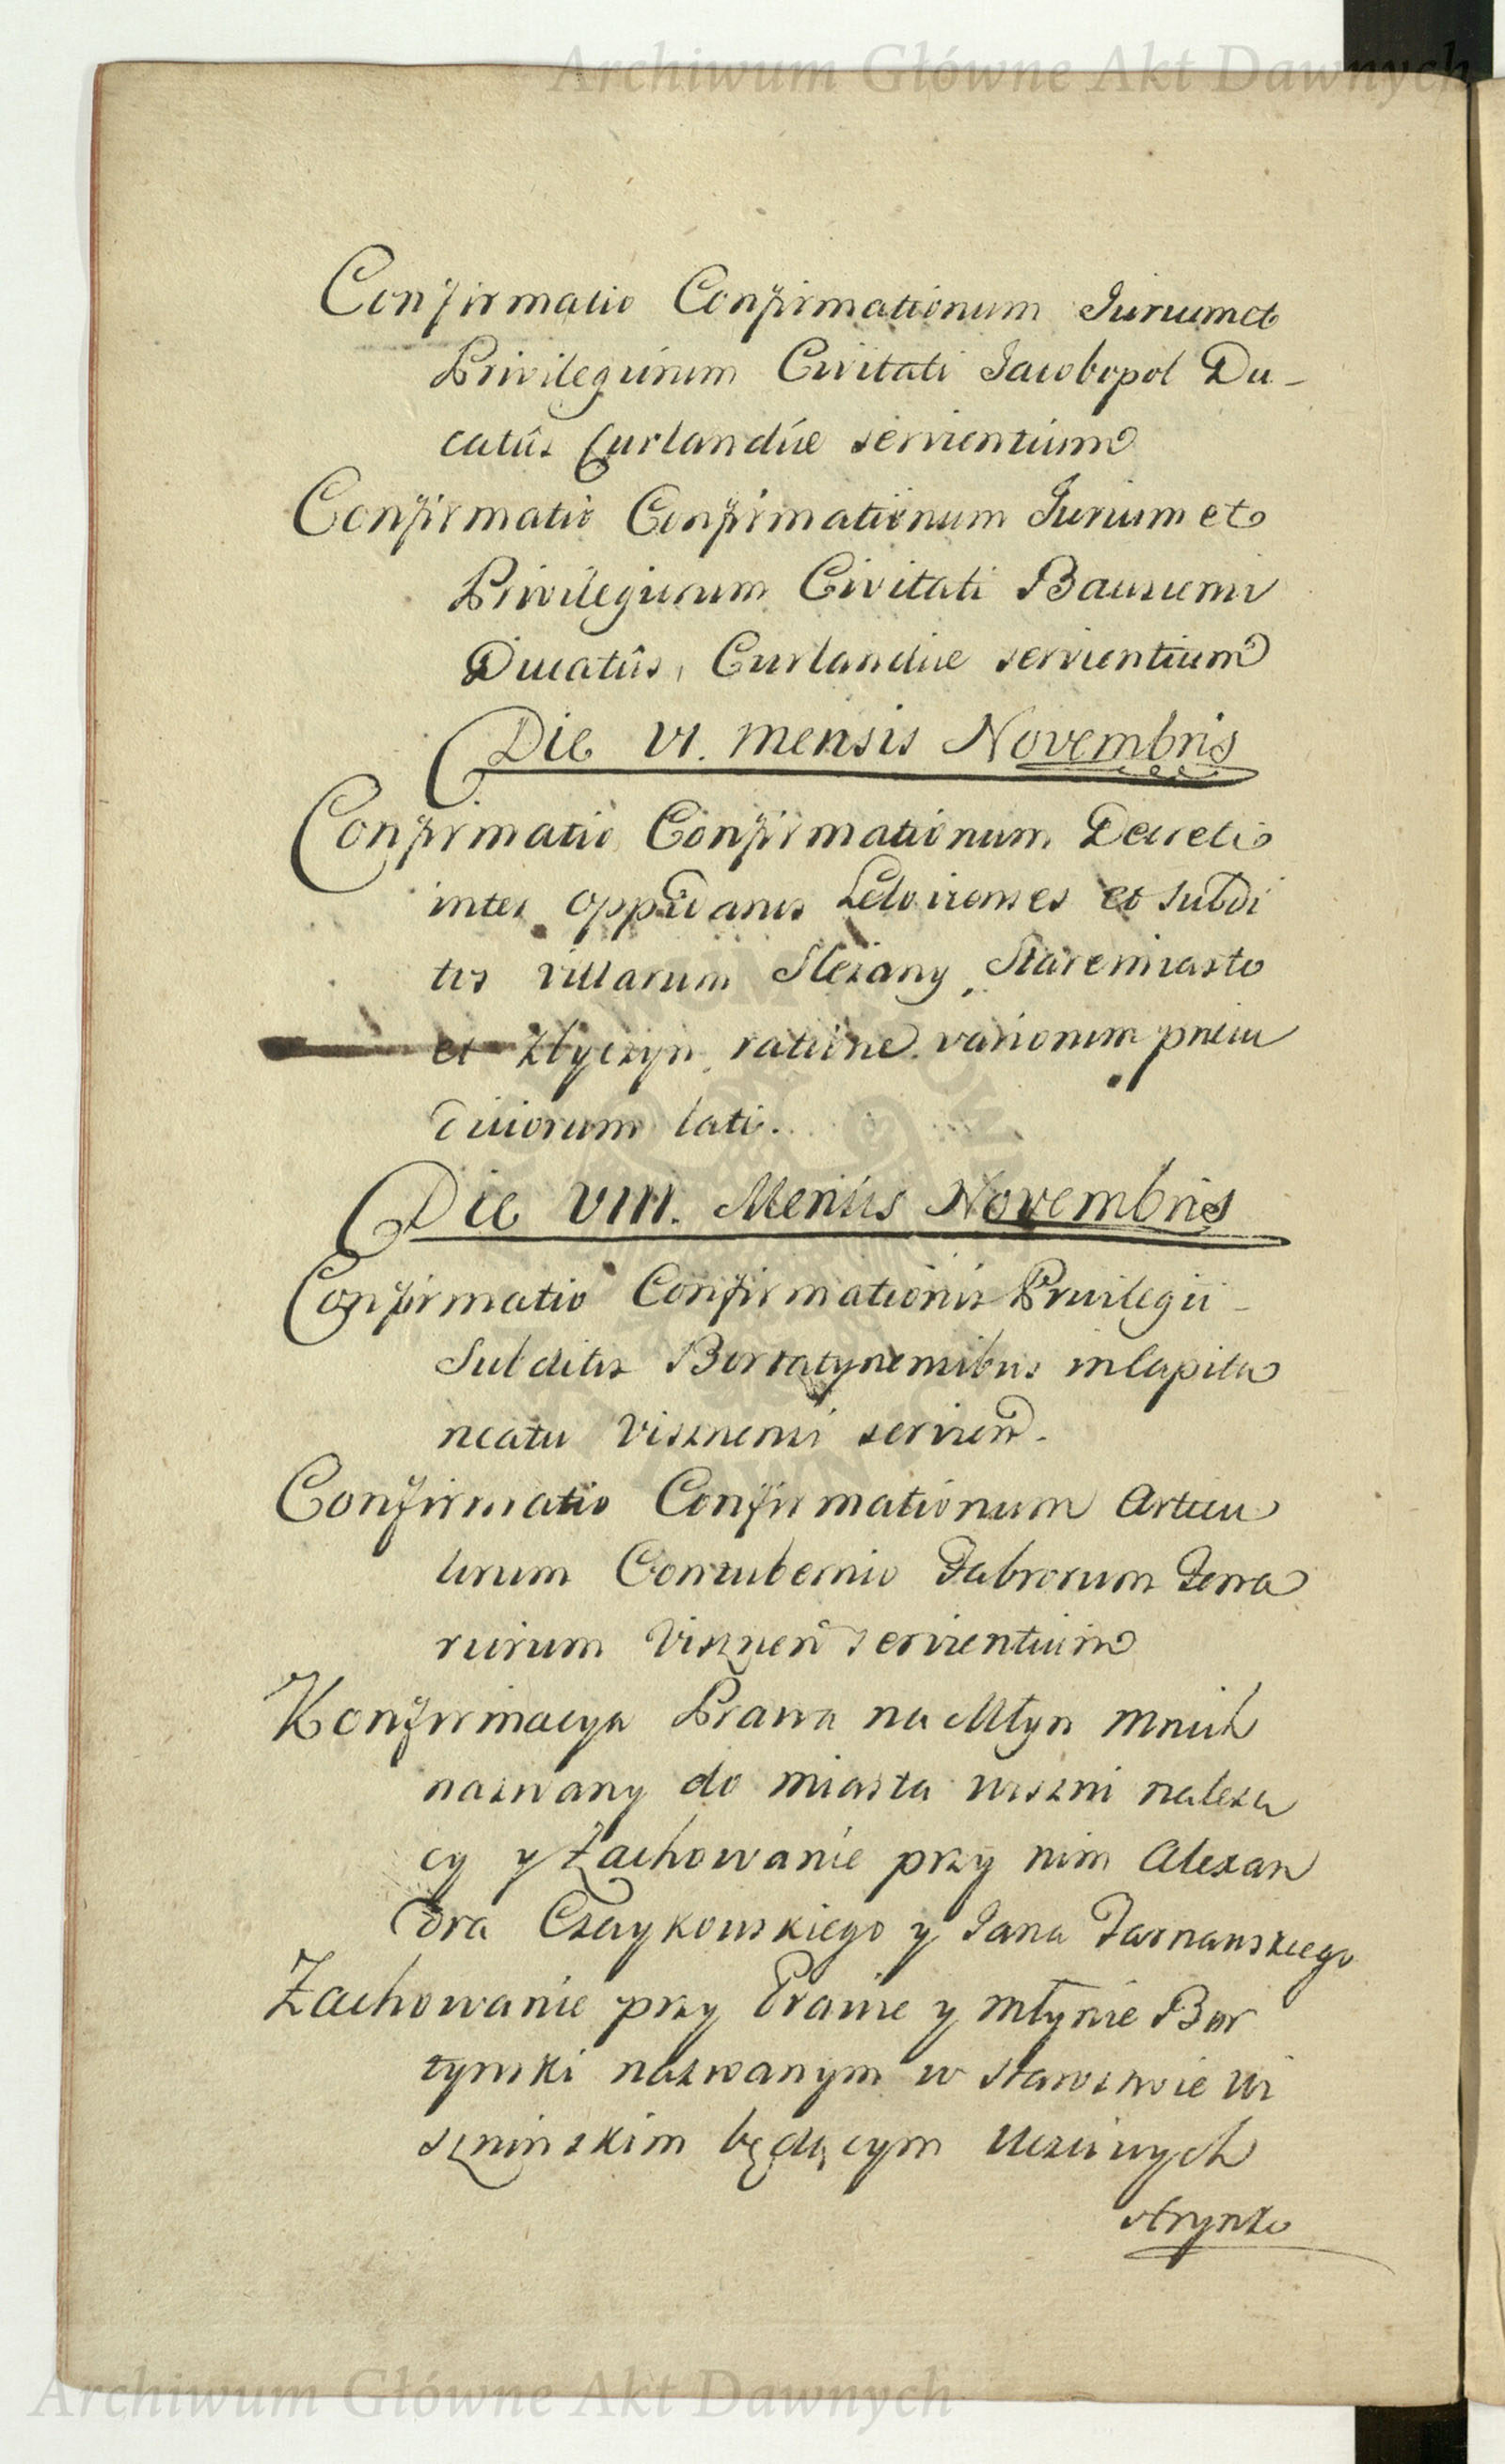 Archiwum Główne Akt Dawnych
Confirmatio Confirmationum Iuriumet
Privilegiorum Civitati Iacobopol Du-
catûs Curlandiæ servientium
Confirmatio Confirmationum Iurium et
Privilegiorum Civitati Bausiensi
Ducatûs Curlandiæ servientium
Die VI. mensis Novembris
Confirmatio Confirmationum Decreti
inter oppidanos et subdi
tos villarum Slezany, Staremiasto
et ratione variorum præiu
diciorum lati.
Die VIII. Mensis Novembris
Confirmatio Confirmationis Privilegii
Subditis Bortatynensibus in Capita
neatu Visznensi servien.
Confirmatio Confirmationum Articu
lorum Contubernio Fabrorum Ferra
riorum Viszneñ servientium
Konfirmacya Prawa na Młyn Mnich
nazwany do miasta Wiszni należą
cy y Zachowanie przy nim Alexan
dra Czaykowskiego y Jana Tarnawskiego
Zachowanie przy Prawie y młynie Bor
tynski nazwanym w Starostwie Wi
sznińskim będącym Uczciwych
Hrynko
Archiwum Główne Akt Dawnych